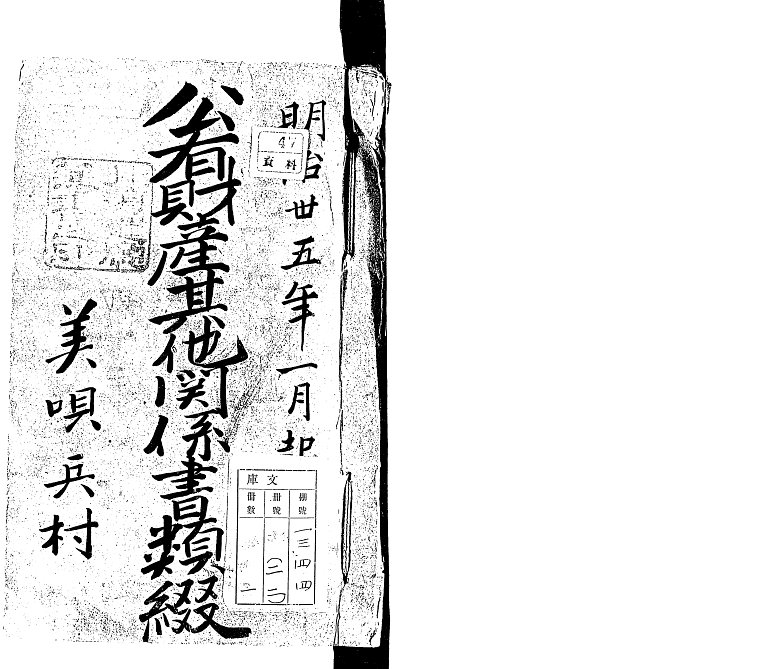 明治卅五年一月起
47
資料
公有財産其他関係書類綴
美唄兵村
文庫
棚號
一三四四
冊號
(二二)
冊數
一